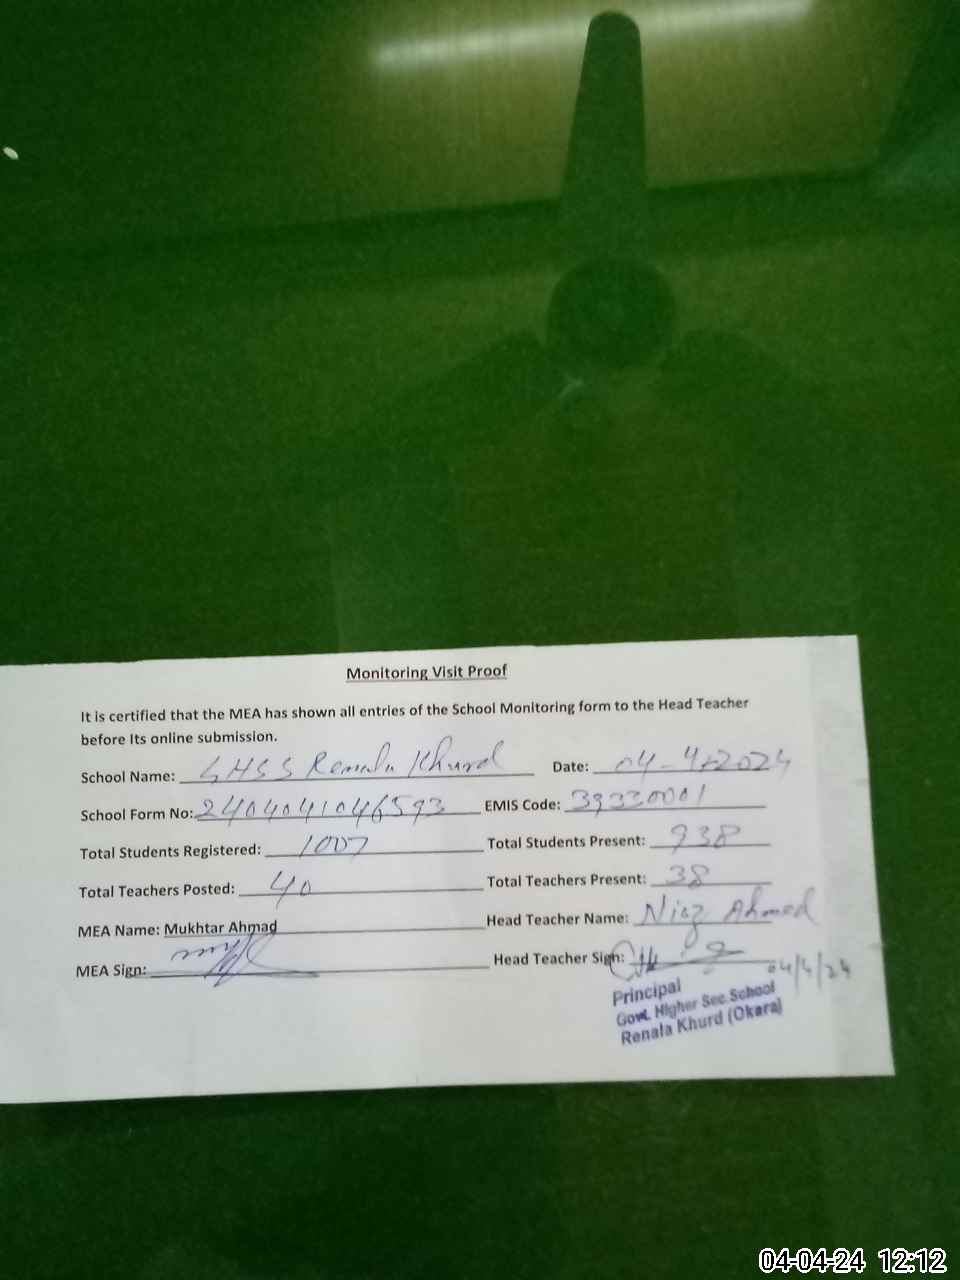 Monitoring Visit Proof
It is certified that the MEA has shown all entries of the School Monitoring form to the Head Teacher
before Its online submission.
School Name: GHSS Renala Khurd Date: 04-4-2024
School Form No: 2404041046593 EMIS Code: 39330001
Total Students Registered: 1007 Total Students Present: 938
Total Teachers Posted: 40 Total Teachers Present: 38
MEA Name: Mukhtar Ahmad Head Teacher Name: Niaz Ahmad
MEA Sign: Head Teacher Sign:
04/4/24
Principal
Govt. Higher Sec. School
Renala Khurd (Okara)
04-04-24 12:12